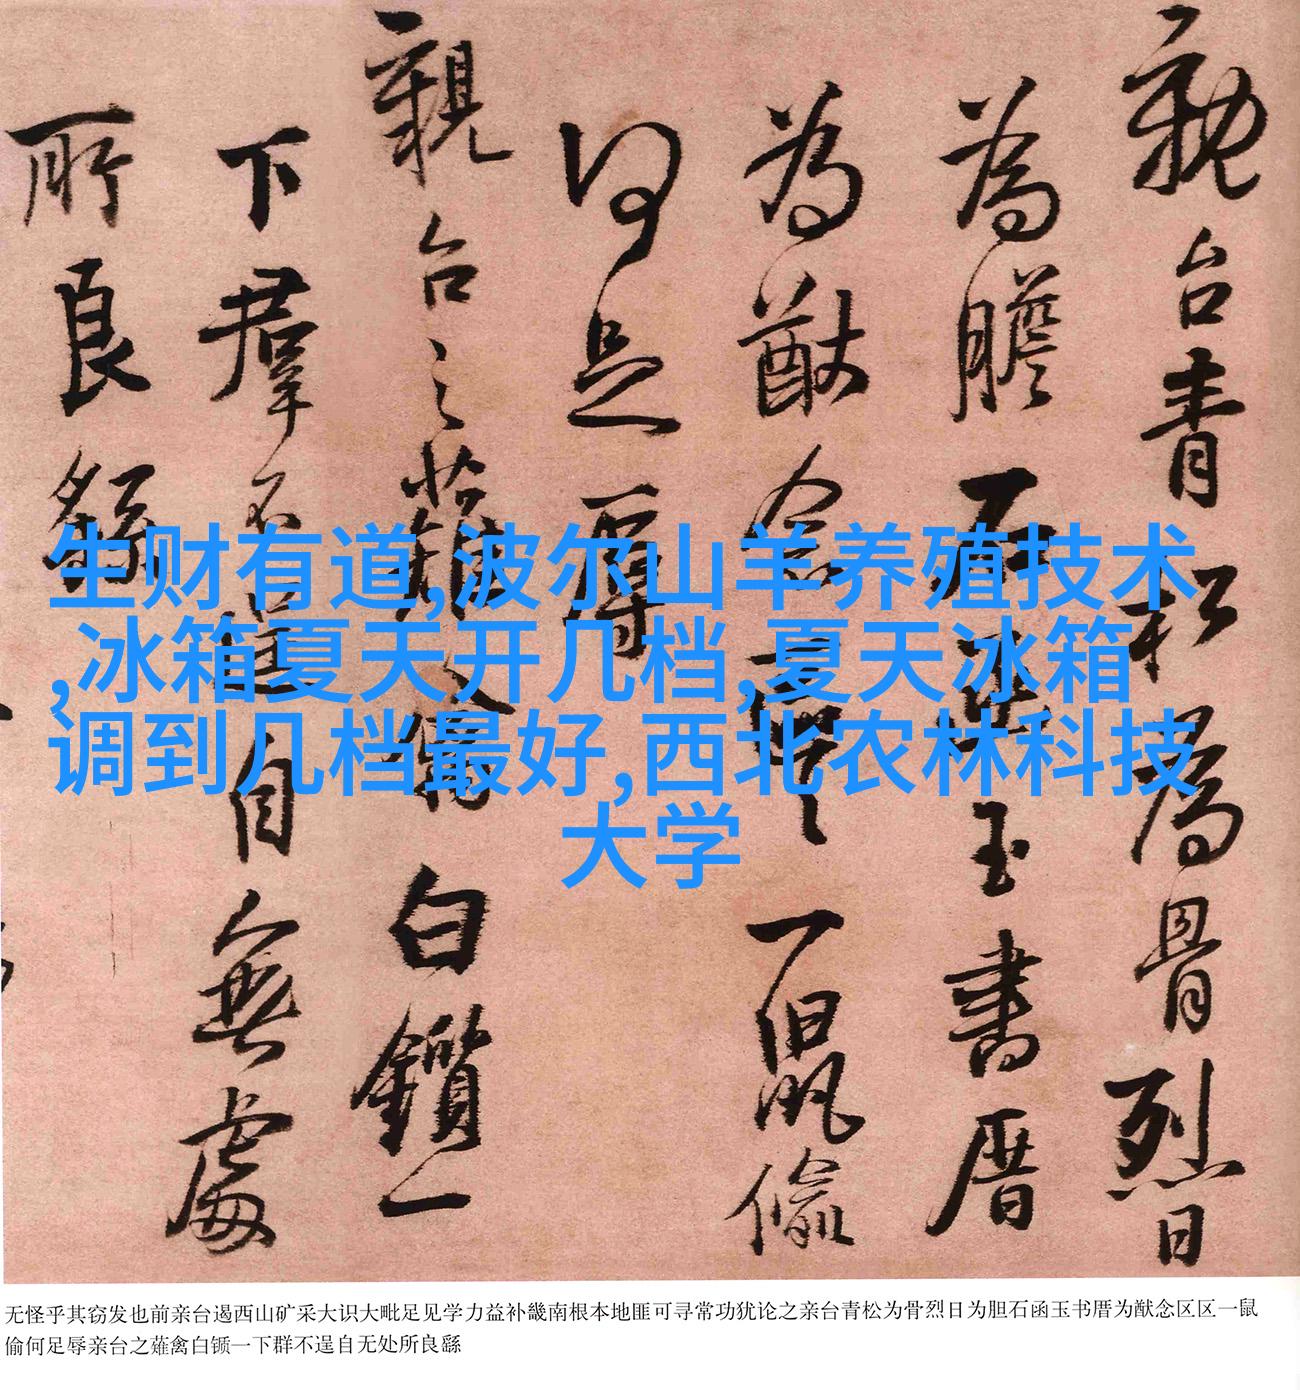 親台青松為骨烈日
為膽石函玉書厝
為猷念區區一鼠偷
何足辱
親台之薙禽白鑕一
下羣不逞自無處
所良繇
生财有道,波尔山羊养殖技术
,冰箱夏天开几档,夏天冰箱
调到几档最好,西北农林科技
大学
无怪乎其窃发也前亲台遏西山矿采大识大毗足见学力益补畿南根本地匪可寻常功犹论之亲台青松为骨烈日为胆石函玉书厝为猷念区区一鼠
偷何足辱亲台之薙禽白锧一下群不逞自无处所良繇